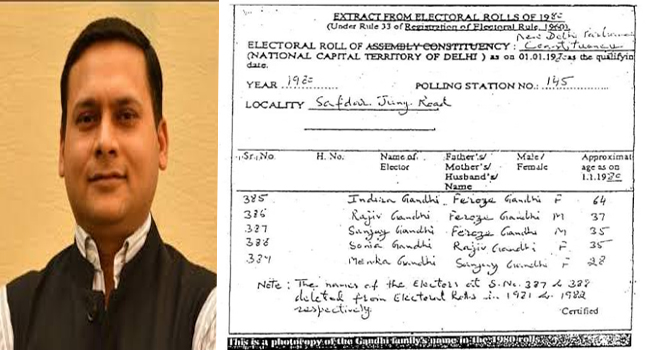 EXTRACT FROM ELECTORAL ROLLS OF 1980
(Under Rule 33 of Registration of Electoral Rule, 1960)
New Delhi Parliamentary
ELECTORAL ROLL OF ASSEMBLY CONSTITUENCY : Constituency
(NATIONAL CAPITAL TERRITORY OF DELHI ) as on 01.01.1980 as the qualifyin
date.
YEAR 1980 POLLING STATION NO.: 145
LOCALITY Safdar Jung Road
Sr.No. H. No. Name of Elector Father's/ Mother's/ Husband's/ Name Male/ Female Approximat age as on 1.1.1980
385 Indira Gandhi Feroze Gandhi F 64
386 Rajiv Gandhi Feroze Gandhi M 37
387 Sanjay Gandhi Feroze Gandhi M 35
388 Sonia Gandhi Rajiv Gandhi F 35
389 Menka Gandhi Sanjay Gandhi F 28
Note : The names of the Electors at S.No. 387 & 388
deleted from Electoral Rolls in 1981 & 1982
respectively.
Certified
This is a photocopy of the Gandhi family's name in the 1980 rolls